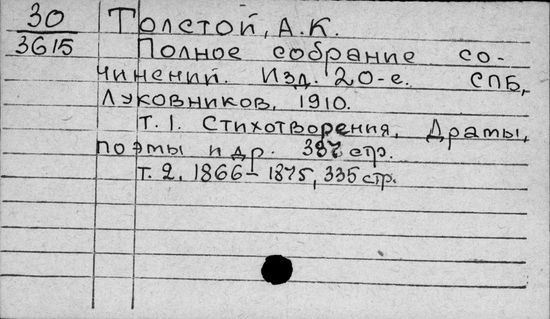 30 Толстой, А.К.
3615 Полное собрание со-
чинений. Изд. 20-е. СПБ,
Луковников, 1910.
т. 1. Стихотворения, Драмы,
поэмы и др. 387 стр.
т. 2. 1866-1875, 335 стр.